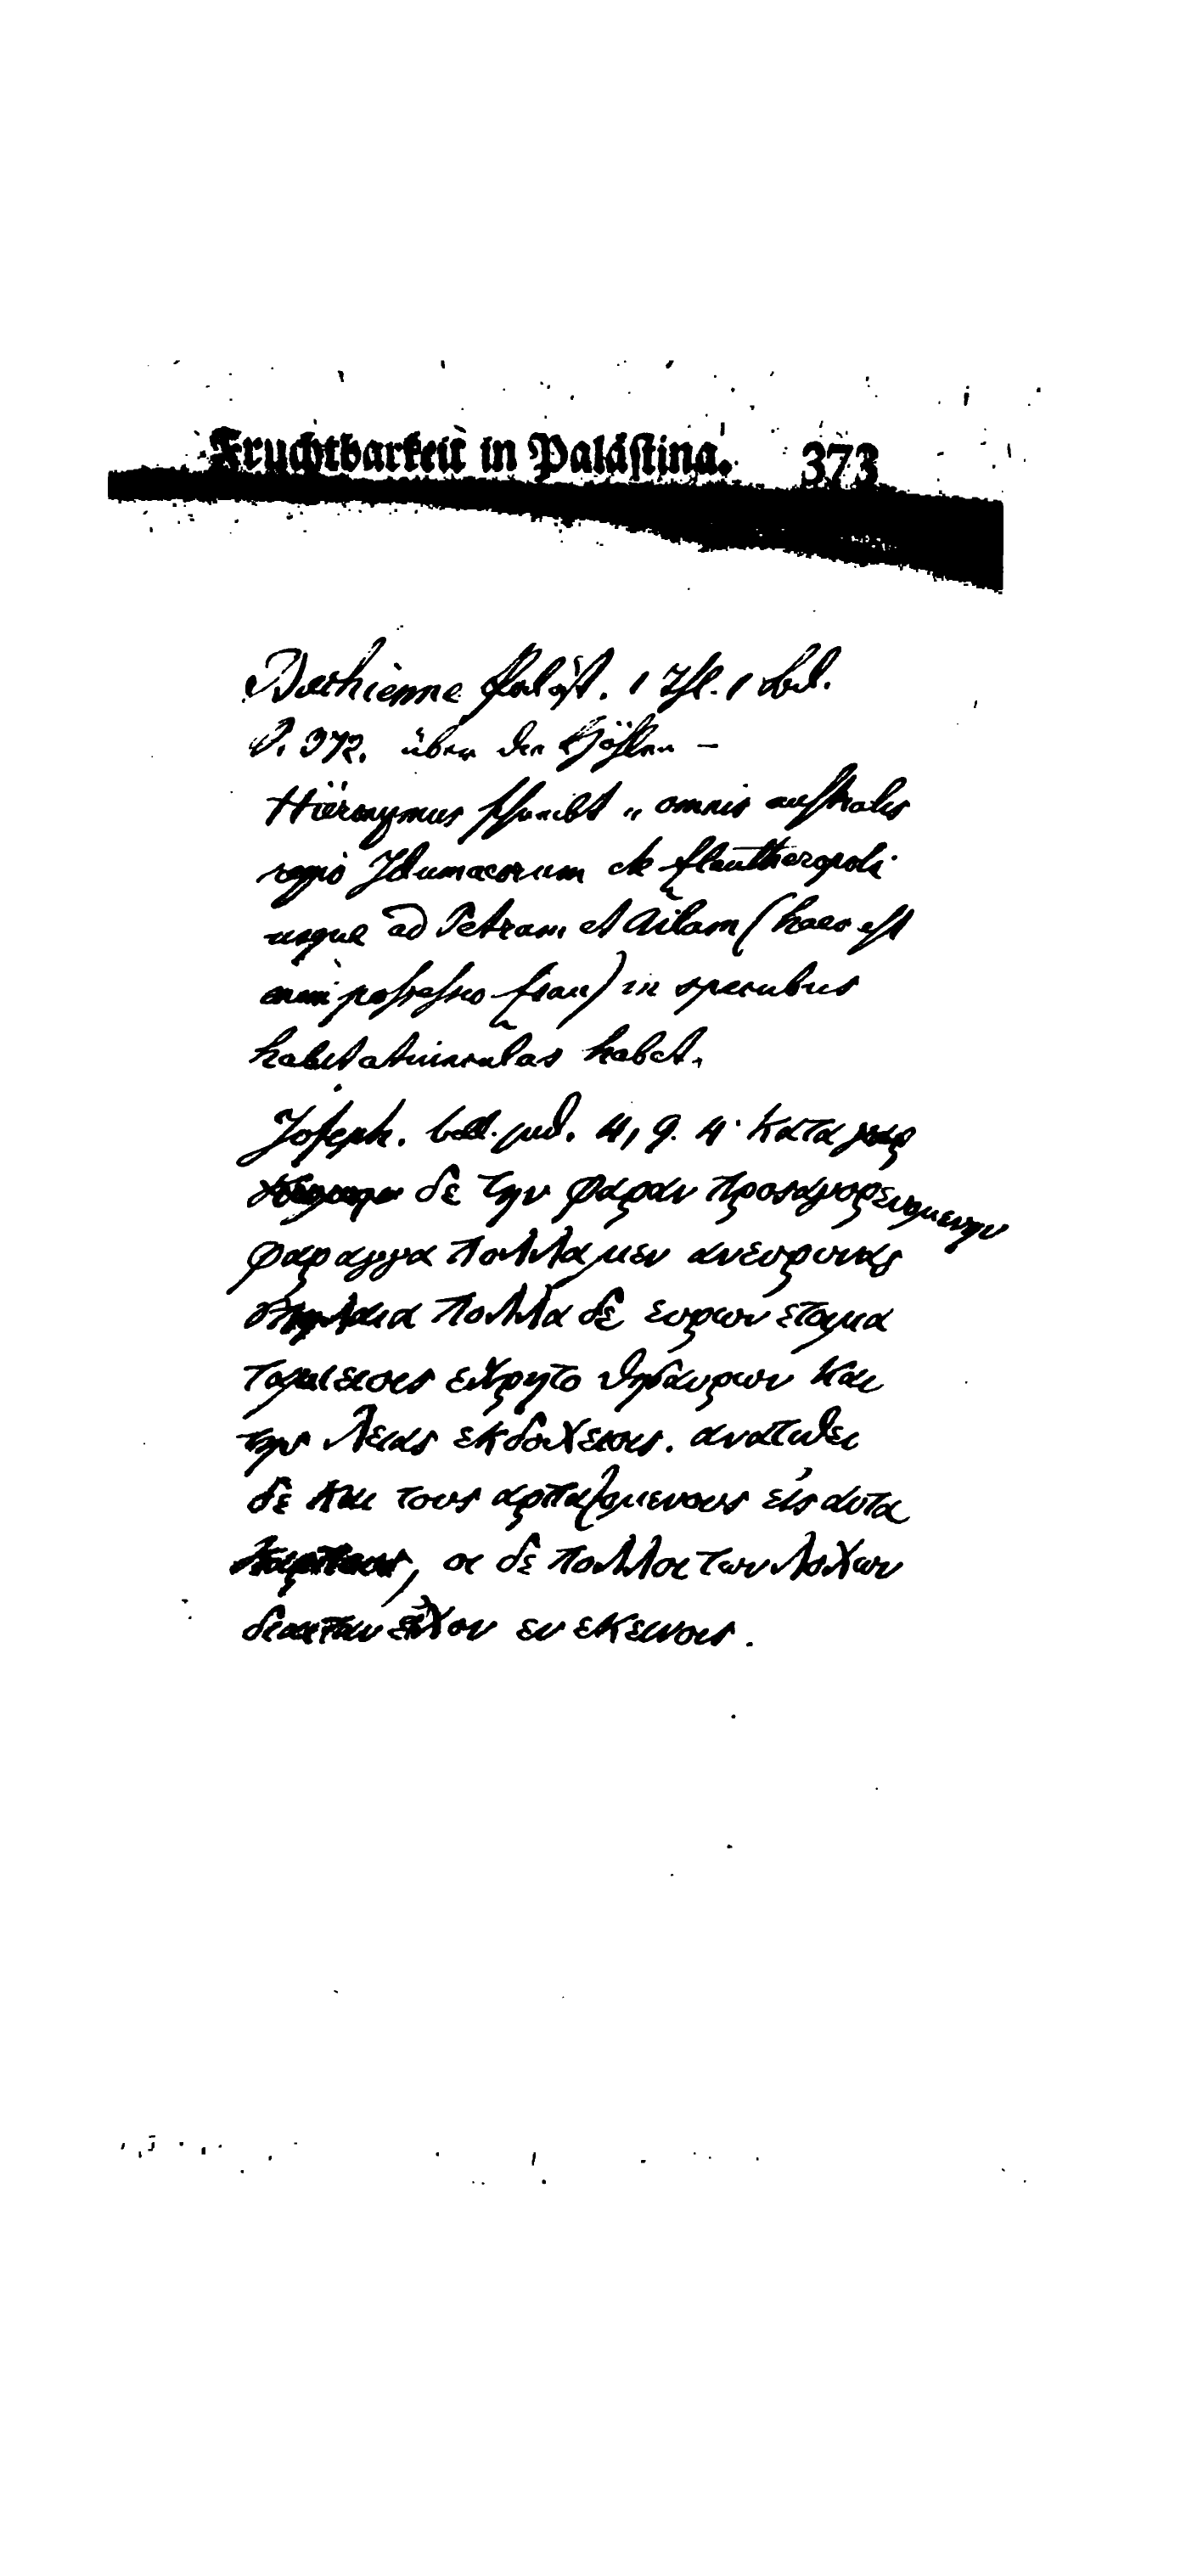 Fruchtbarkeit in Palästina. 373
Bachienne Paläst. 1 Thl. 1 Bd.
S. 372. über die Höhlen –
Hieronymus schreibt „ omnis australis
regio Idumaeorum de Eleutheropoli
usque ad Petram et Ailam (haec est
enim possessio Esau) in specubus
habitatiunculas habet.
Joseph. bell. jud. 4, 9. 4. κατα
δε την φαραν προσαγορευομενην
φαραγγα πολλα μεν ανευρυνας
σπηλαια πολλα δε ευρων ετοιμα
ταμιειοις εχρητο θησαυρων και
της λειας εκδοχειοις. ανατιθει
δε και τους αρπαζομενους εἰς αυτα
καρπους, οι δε πολλοι των λοχων
διαιταν ειχον εν εκεινοις.